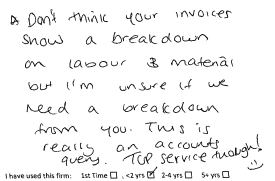 Don't think your invoices
show a breakdown
on labour & material
but I'm unsure if we
need a breakdown
from you. This is
really an accounts
query. TOP service though!
I have used this firm: 1st Time ☐ <2 yrs ☑ 2-4 yrs ☐ 5+ yrs ☐